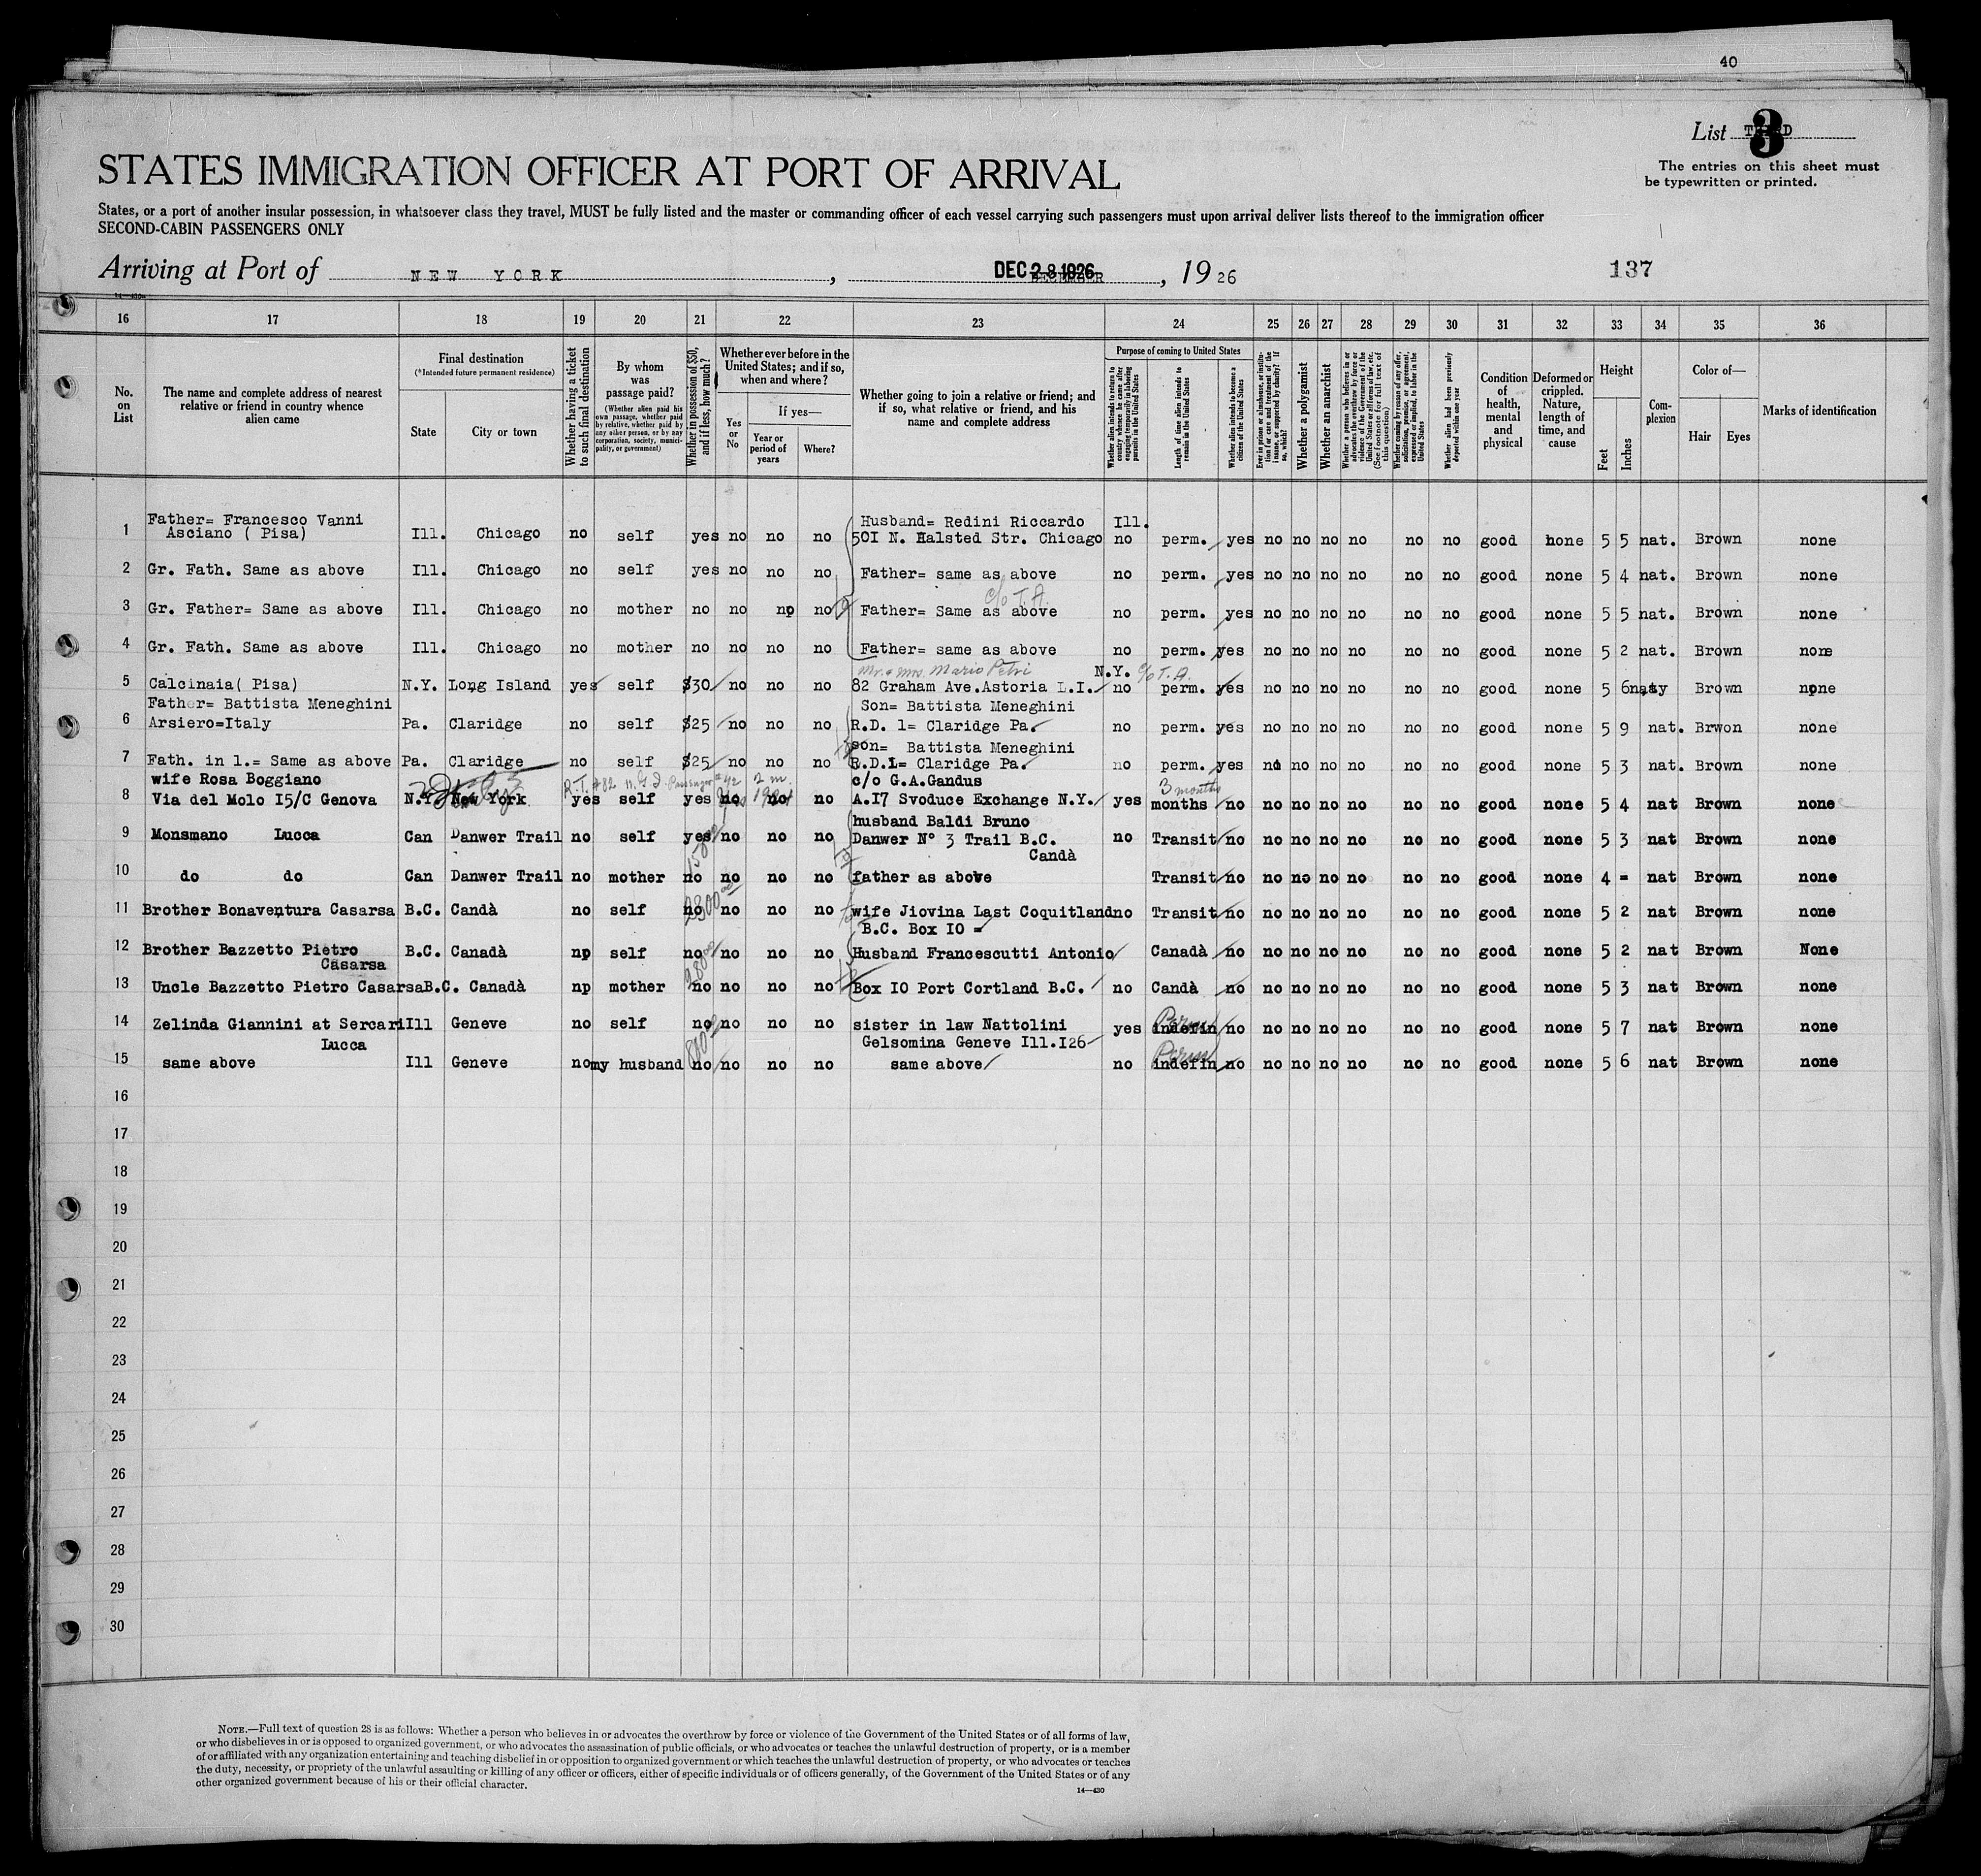 40
List THIRD 3
The entries on this sheet must
be typewritten or printed.
STATES IMMIGRATION OFFICER AT PORT OF ARRIVAL
States, or a port of another insular possession, in whatsoever class they travel, MUST be fully listed and the master or commanding officer of each vessel carrying such passengers must upon arrival deliver lists thereof to the immigration officer
SECOND-CABIN PASSENGERS ONLY
Arriving at Port of NEW YORK, DEC 28 1926 DECEMBER, 19 26
137
14—430
16 17 18 19 20 21 22 23 24 25 26 27 28 29 30 31 32 33 34 35 36
No. on List
The name and complete address of nearest relative or friend in country whence alien came
Final destination
(*Intended future permanent residence)
State
City or town
Whether having a ticket to such final destination
By whom was passage paid?
(Whether alien paid his own passage, whether paid by relative, whether paid by any other person, or by any corporation, society, municipality, or government)
Whether in possession of $50, and if less, how much?
Whether ever before in the United States; and if so, when and where?
Yes or No
If yes—
Year or period of years
Where?
Whether going to join a relative or friend; and if so, what relative or friend, and his name and complete address
Purpose of coming to United States
Whether alien intends to return to country whence he came after engaging temporarily in laboring pursuits in the United States
Length of time alien intends to remain in the United States
Whether alien intends to become a citizen of the United States
Ever in prison or almshouse, or institution for care and treatment of the insane, or supported by charity? If so, which?
Whether a polygamist
Whether an anarchist
Whether a person who believes in or advocates the overthrow by force or violence of the Government of the United States or all forms of law, etc. (See footnote for full text of this question)
Whether coming by reason of any offer, solicitation, promise, or agreement, expressed or implied, to labor in the United States
Whether alien had been previously deported within one year
Condition of health, mental and physical
Deformed or crippled. Nature, length of time, and cause
Height
Feet
Inches
Complexion
Color of—
Hair
Eyes
Marks of identification
Father= Francesco Vanni Husband= Redini Riccardo Ill.
1 Asciano ( Pisa) Ill. Chicago no self yes no no no 50I N. Halsted Str. Chicago no perm. yes no no no no no no good none 5 5 nat. Brown none
2 Gr. Fath. Same as above Ill. Chicago no self yes no no no Father= same as above no perm. yes no no no no no no good none 5 4 nat. Brown none
c/o T.A.
3 Gr. Father= Same as above Ill. Chicago no mother no no no no Father= Same as above no perm. yes no no no no no no good none 5 5 nat. Brown none
4 Gr. Fath. Same as above Ill. Chicago no mother no no no no Father= same as above no perm. yes no no no no no no good none 5 2 nat. Brown none
Mr. & Mrs. Mario Petri N.Y. c/o T.A.
5 Calcinaia( Pisa) N.Y. Long Island yes self $30 no no no 82 Graham Ave.Astoria L.I. no perm. yes no no no no no no good none 5 6 Brown none
Father= Battista Meneghini Son= Battista Meneghini
6 Arsiero=Italy Pa. Claridge no self $25 no no no R.D. 1= Claridge Pa. no perm. yes no no no no no no good none 5 9 nat. Brwon none
son= Battista Meneghini
7 Fath. in l.= Same as above Pa. Claridge no self $25 no no no R.D.1= Claridge Pa. no perm. yes no no no no no no good none 5 3 nat. Brown none
wife Rosa Boggiano R.T. #82 2 m. c/o G.A.Gandus 3 months
8 Via del Molo I5/C Genova N.Y. New York yes self yes no no no A.I7 Svoduce Exchange N.Y. yes months no no no no no no no good none 5 4 nat Brown none
husband Baldi Bruno
9 Monsmano Lucca Can Danwer Trail no self yes no no no Danwer N° 3 Trail B.C. no Transit no no no no no no no good none 5 3 nat Brown none
Candà
10 do do Can Danwer Trail no mother no no no no father as above Transit no no no no no no no good none 4 = nat Brown none
11 Brother Bonaventura Casarsa B.C. Candà no self no no no no wife Jiovina Last Coquitland no Transit no no no no no no no good none 5 2 nat Brown none
B.C. Box IO =
12 Brother Bazzetto Pietro B.C. Canadà no self no no no no Husband Francescutti Antonio Canadà no no no no no no no good none 5 2 nat Brown None
Casarsa
13 Uncle Bazzetto Pietro Casarsa B.C. Canadà no mother no no no no Box IO Port Cortland B.C. no Candà no no no no no no no good none 5 3 nat Brown none
14 Zelinda Giannini at Sercari Ill Geneve no self no no no no sister in law Nattolini yes indefin Perm no no no no no no no good none 5 7 nat Brown none
Lucca Gelsomina Geneve Ill.I26
15 same above Ill Geneve no my husband no no no no same above no indefin Perm no no no no no no no good none 5 6 nat Brown none
16
17
18
19
20
21
22
23
24
25
26
27
28
29
30
NOTE.—Full text of question 28 is as follows: Whether a person who believes in or advocates the overthrow by force or violence of the Government of the United States or of all forms of law,
or who disbelieves in or is opposed to organized government, or who advocates the assassination of public officials, or who advocates or teaches the unlawful destruction of property, or is a member
of or affiliated with any organization entertaining and teaching disbelief in or opposition to organized government or which teaches the unlawful destruction of property, or who advocates or teaches
the duty, necessity, or propriety of the unlawful assaulting or killing of any officer or officers, either of specific individuals or of officers generally, of the Government of the United States or of any
other organized government because of his or their official character.
14—430